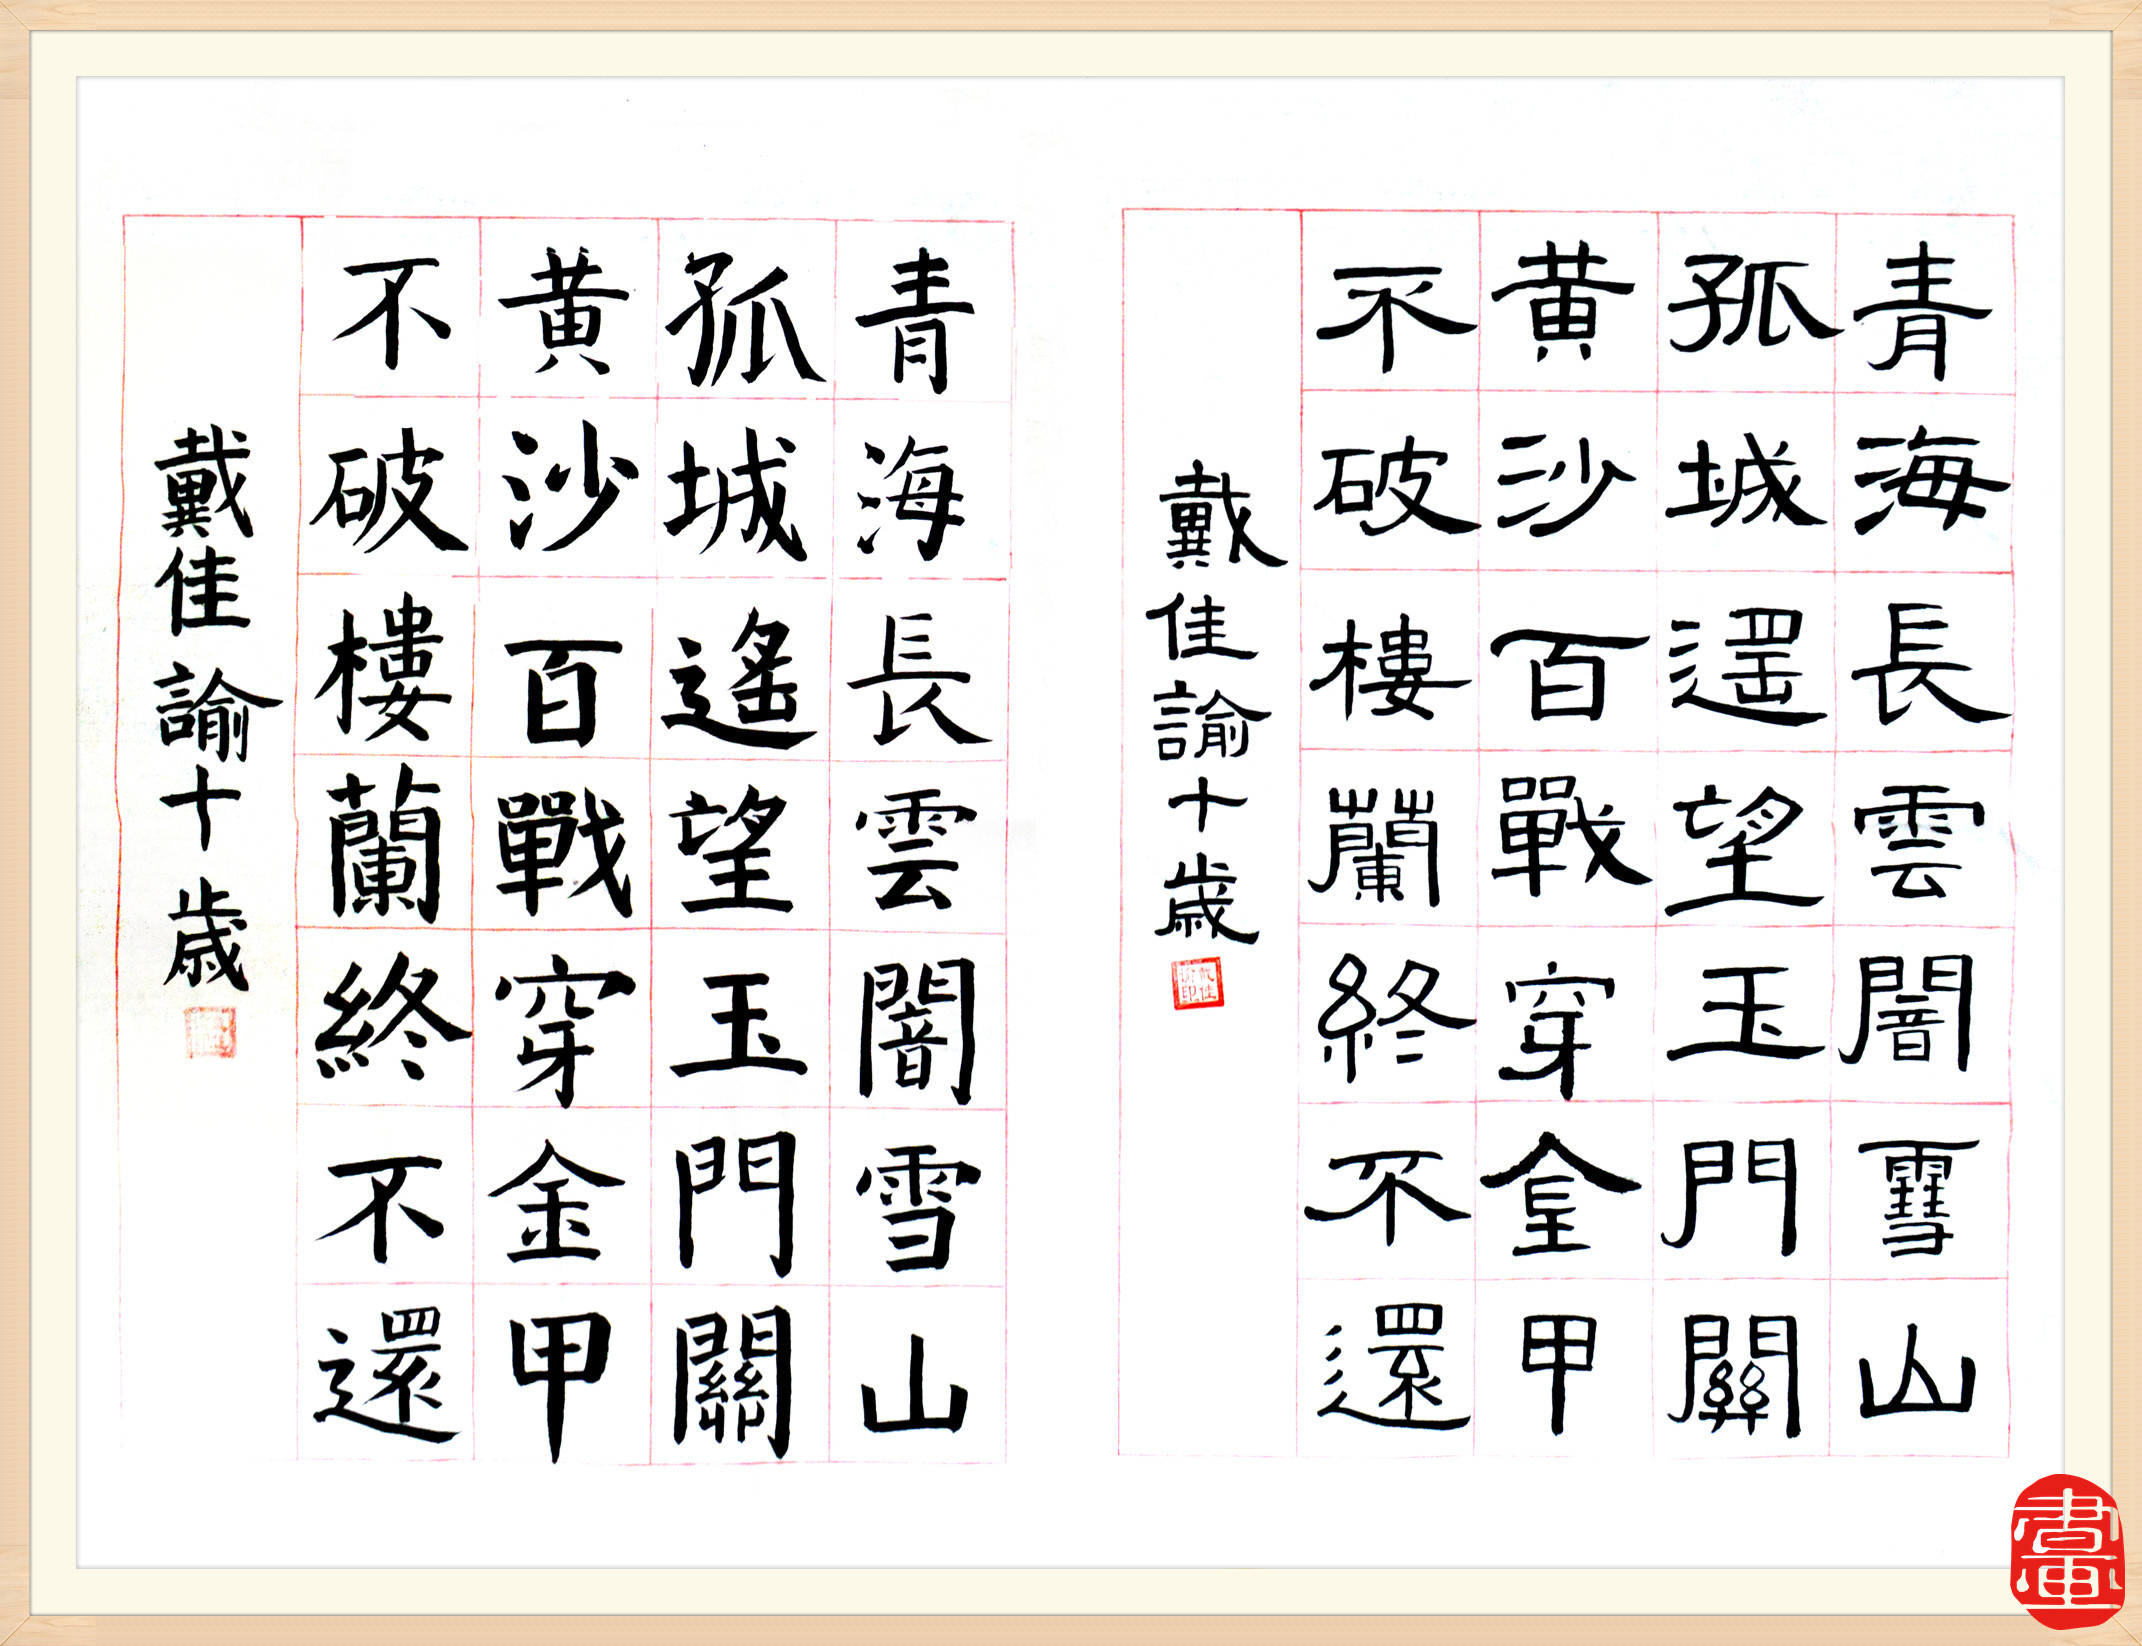 青海長雲闇雪山
孤城遙望玉門關
黄沙百戰穿金甲
不破樓蘭終不還
戴佳諭十歲
青海長雲闇雪山
孤城遙望玉門關
黄沙百戰穿金甲
不破樓蘭終不還
戴佳諭十歲